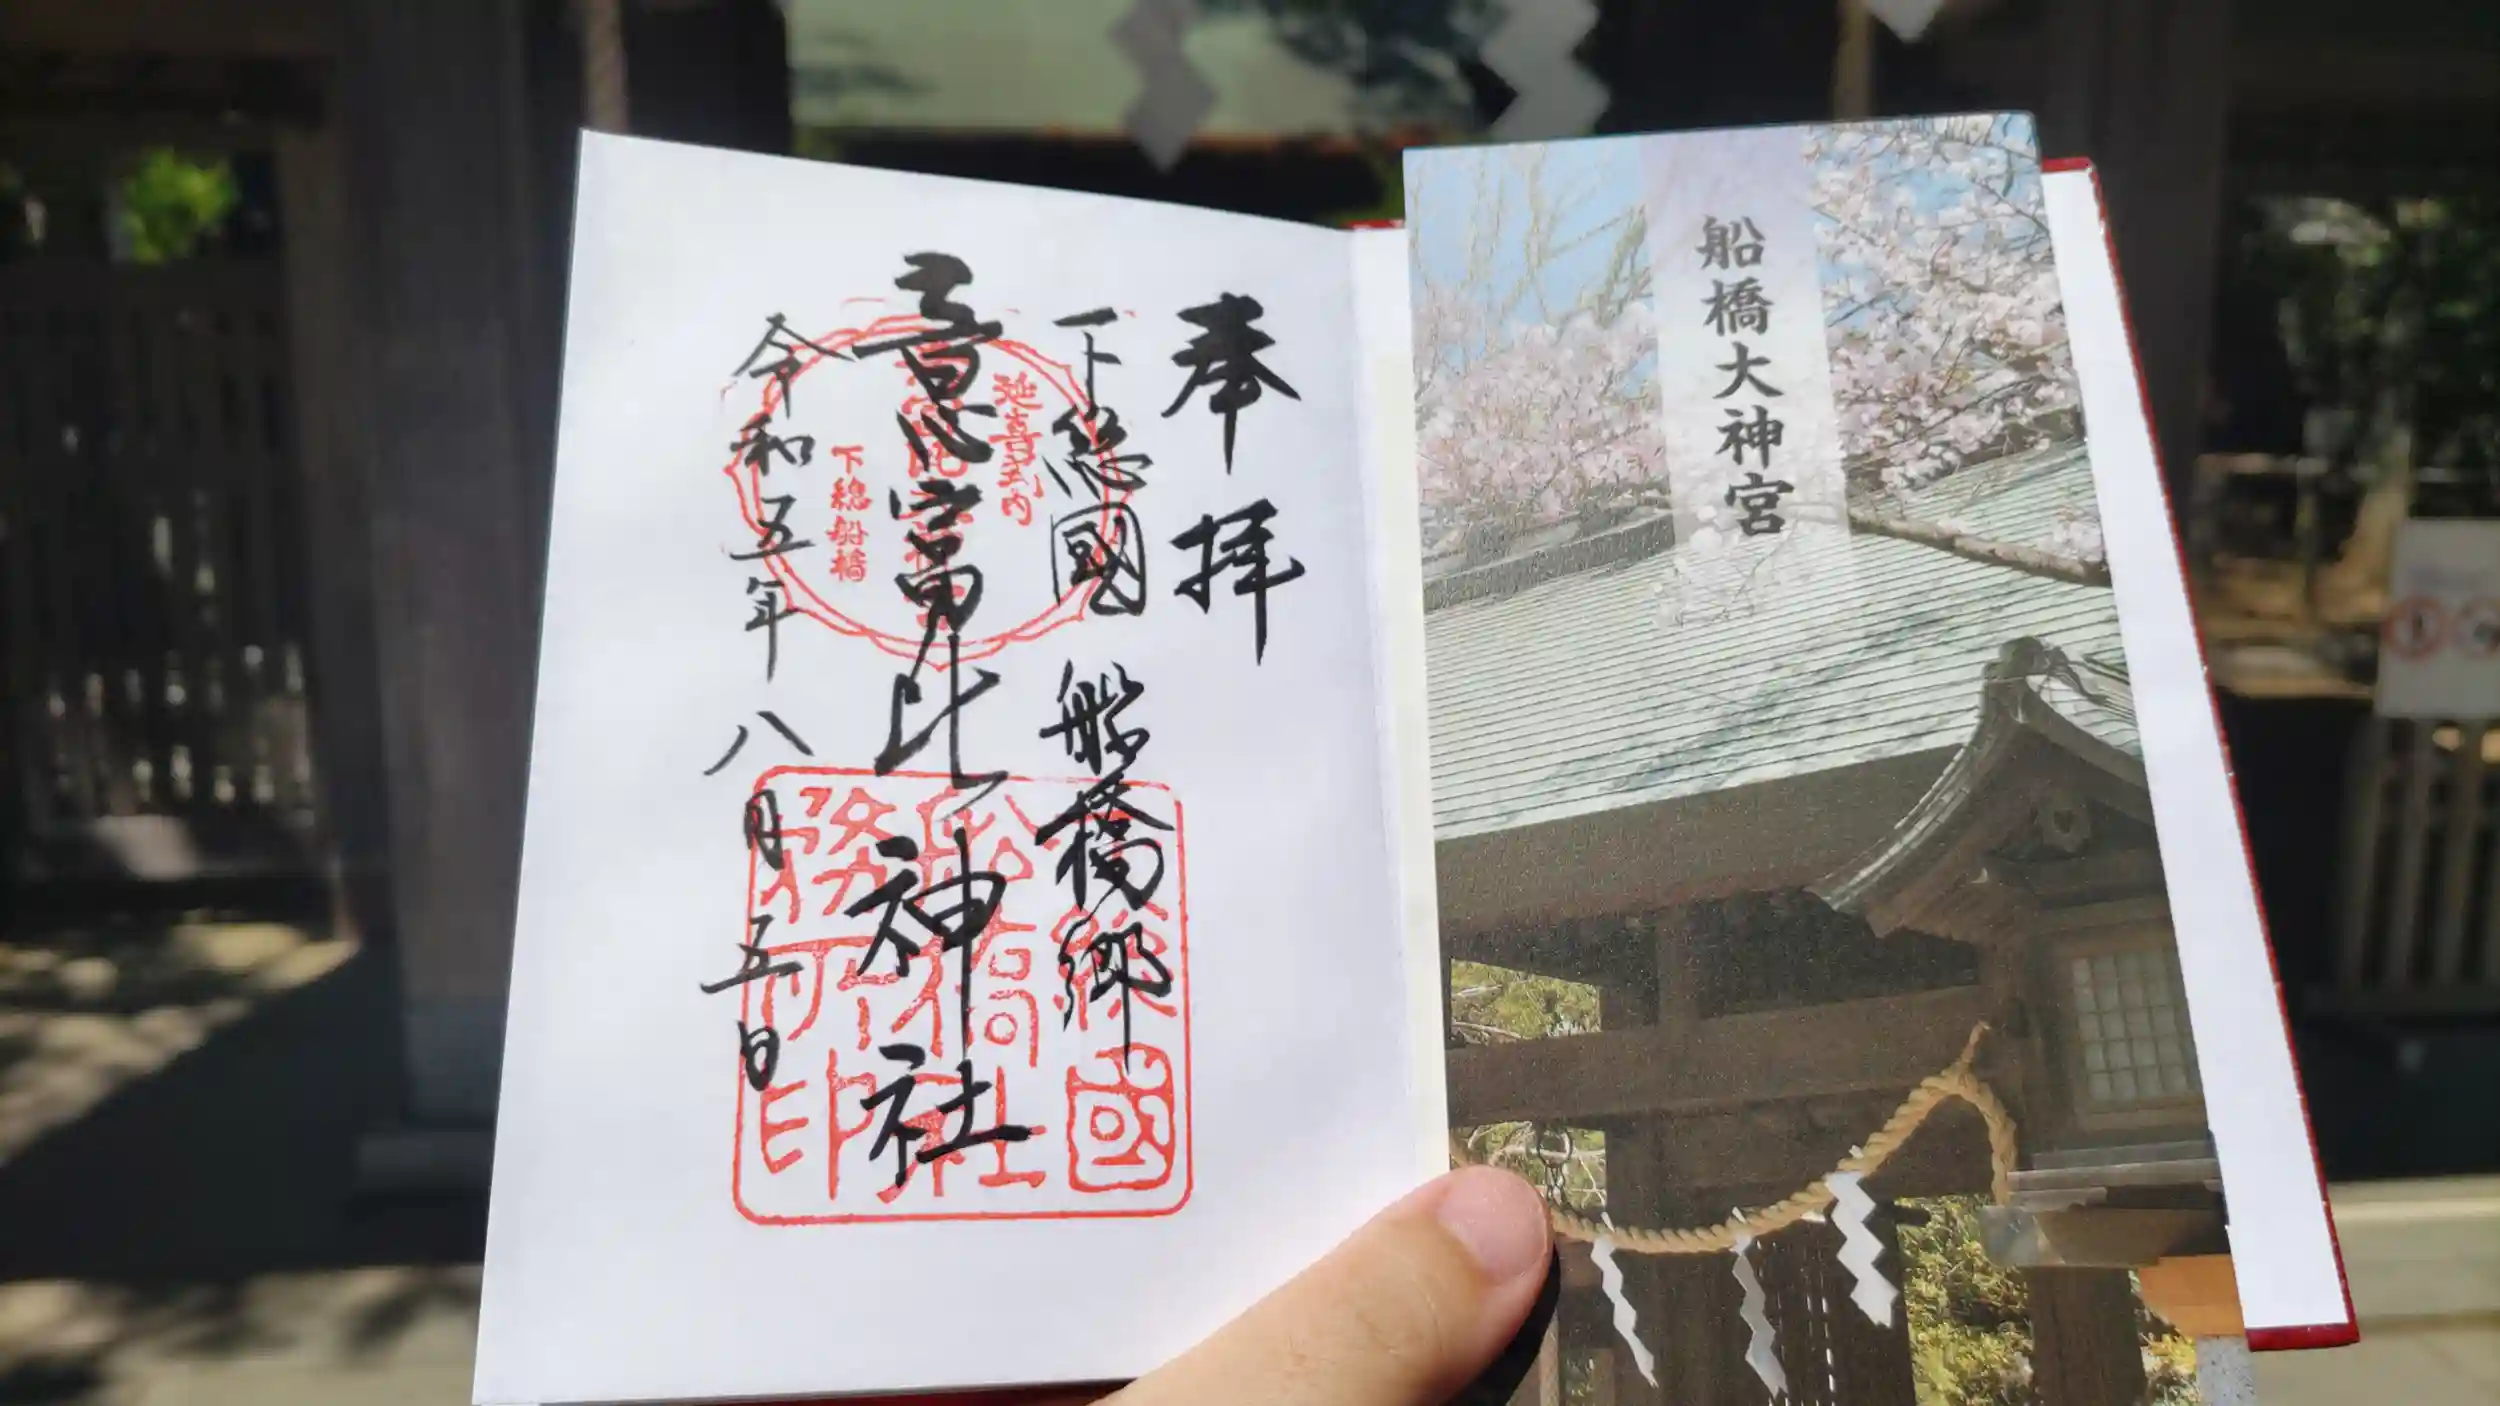 奉拝
下総國 船橋郷
意富比神社
令和五年八月五日
延喜式内
下総船橋
船橋大神宮